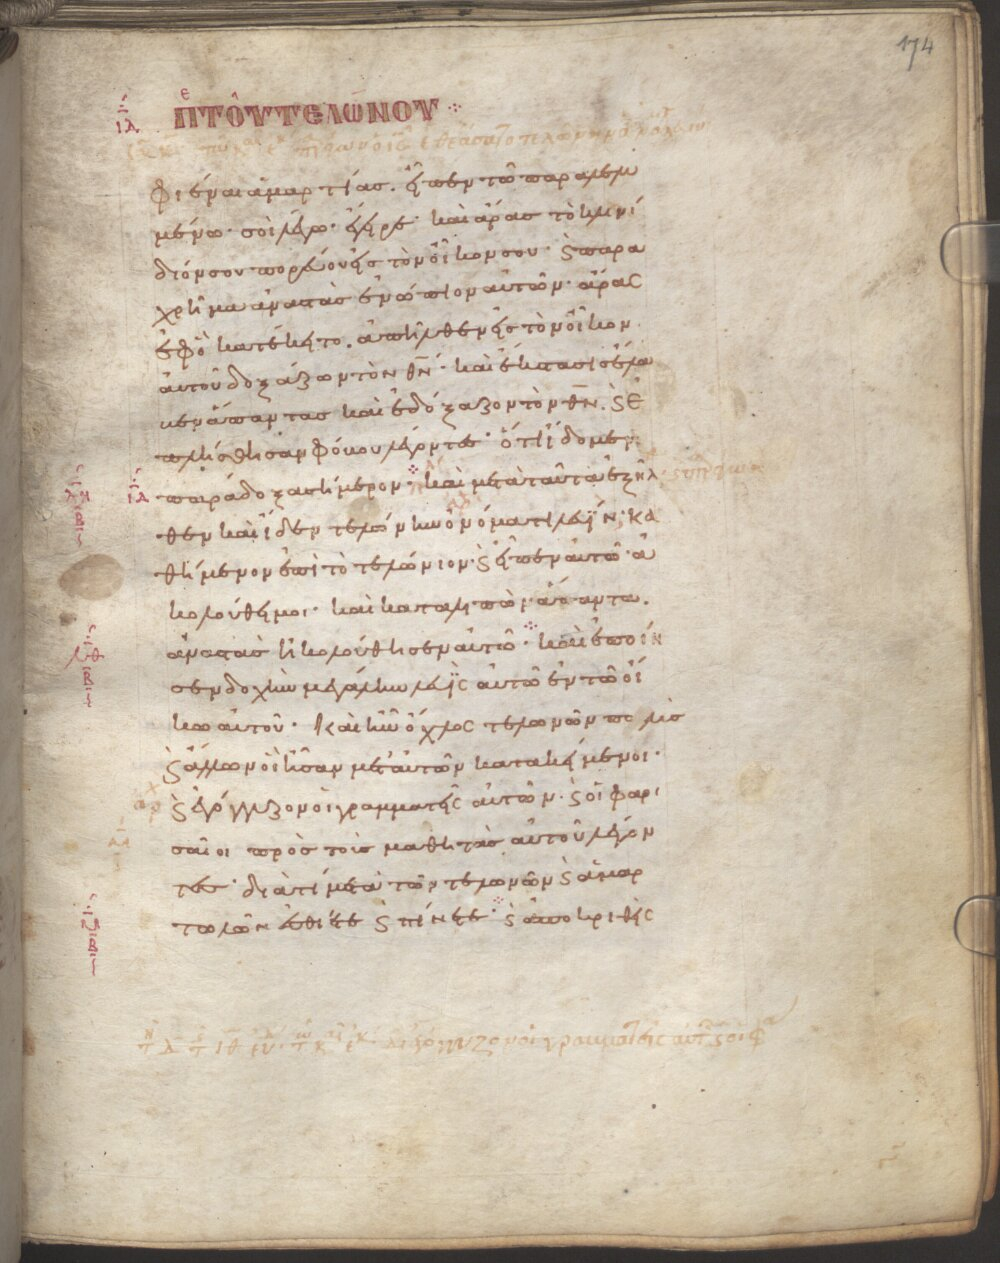 174
ΙΔ ΠΕΡΙ ΤΟΥ ΤΕΛΩΝΟΥ
φιέναι ἁμαρτίας. εἶπεν τῶ παραλελυ
μένω· σοὶ λέγω· ἔγειρε· καὶ ἄρας τὸ κλινί
διόν σου πορεύου εἰς τὸν οἶκον σου· ϛ παρα
χρῆμα ἀναστὰς ἐνώπιον αὐτῶν· ἄρας
ἐφ ὃ κατέκειτο. ἀπῆλθεν εἰς τὸν οἶκον
αὐτοῦ δοξάζων τὸν θν̄· καὶ ἔκστασις ἔλα
βεν ἅπαντας καὶ ἐδόξαζον τὸν θν̄. ϛ ἐ
πλήσθησαν φόβου λέγοντες· ὅτι εἴδομεν
παράδοξα σήμερον· καὶ μετὰ ταῦτα ἐξῆλ
θεν καὶ ἴδεν τελώνην ὀνόματι λευῒν· κα
θήμενον ἐπὶ τὸ τελώνιον· ϛ εἶπεν αὐτῶ· ἀ
κολούθει μοι· καὶ καταλιπὼν ἅπαντα.
ἀναστὰς ἠκολούθησεν αὐτῶ· καὶ ἐποίη
σεν δοχὴν μεγάλην λευῒς αὐτῶ ἐν τῶ οἴ
κω αὐτοῦ· Καὶ ἦν ὄχλος τελωνῶν πολὺς
ϛ ἄλλων οἳ ἦσαν μετ αὐτῶν κατακείμενοι·
ϛ ἐγόγγυζον οἱ γραμματεῖς αὐτῶν· ϛ οἱ φαρι
σαῖοι πρὸς τοὺς μαθητὰς αὐτοῦ λέγον
τες· διατί μετὰ τῶν τελωνῶν ϛ ἁμαρ
τωλῶν ἐσθίετε ϛ πίνετε· ϛ ἀποκριθεὶς